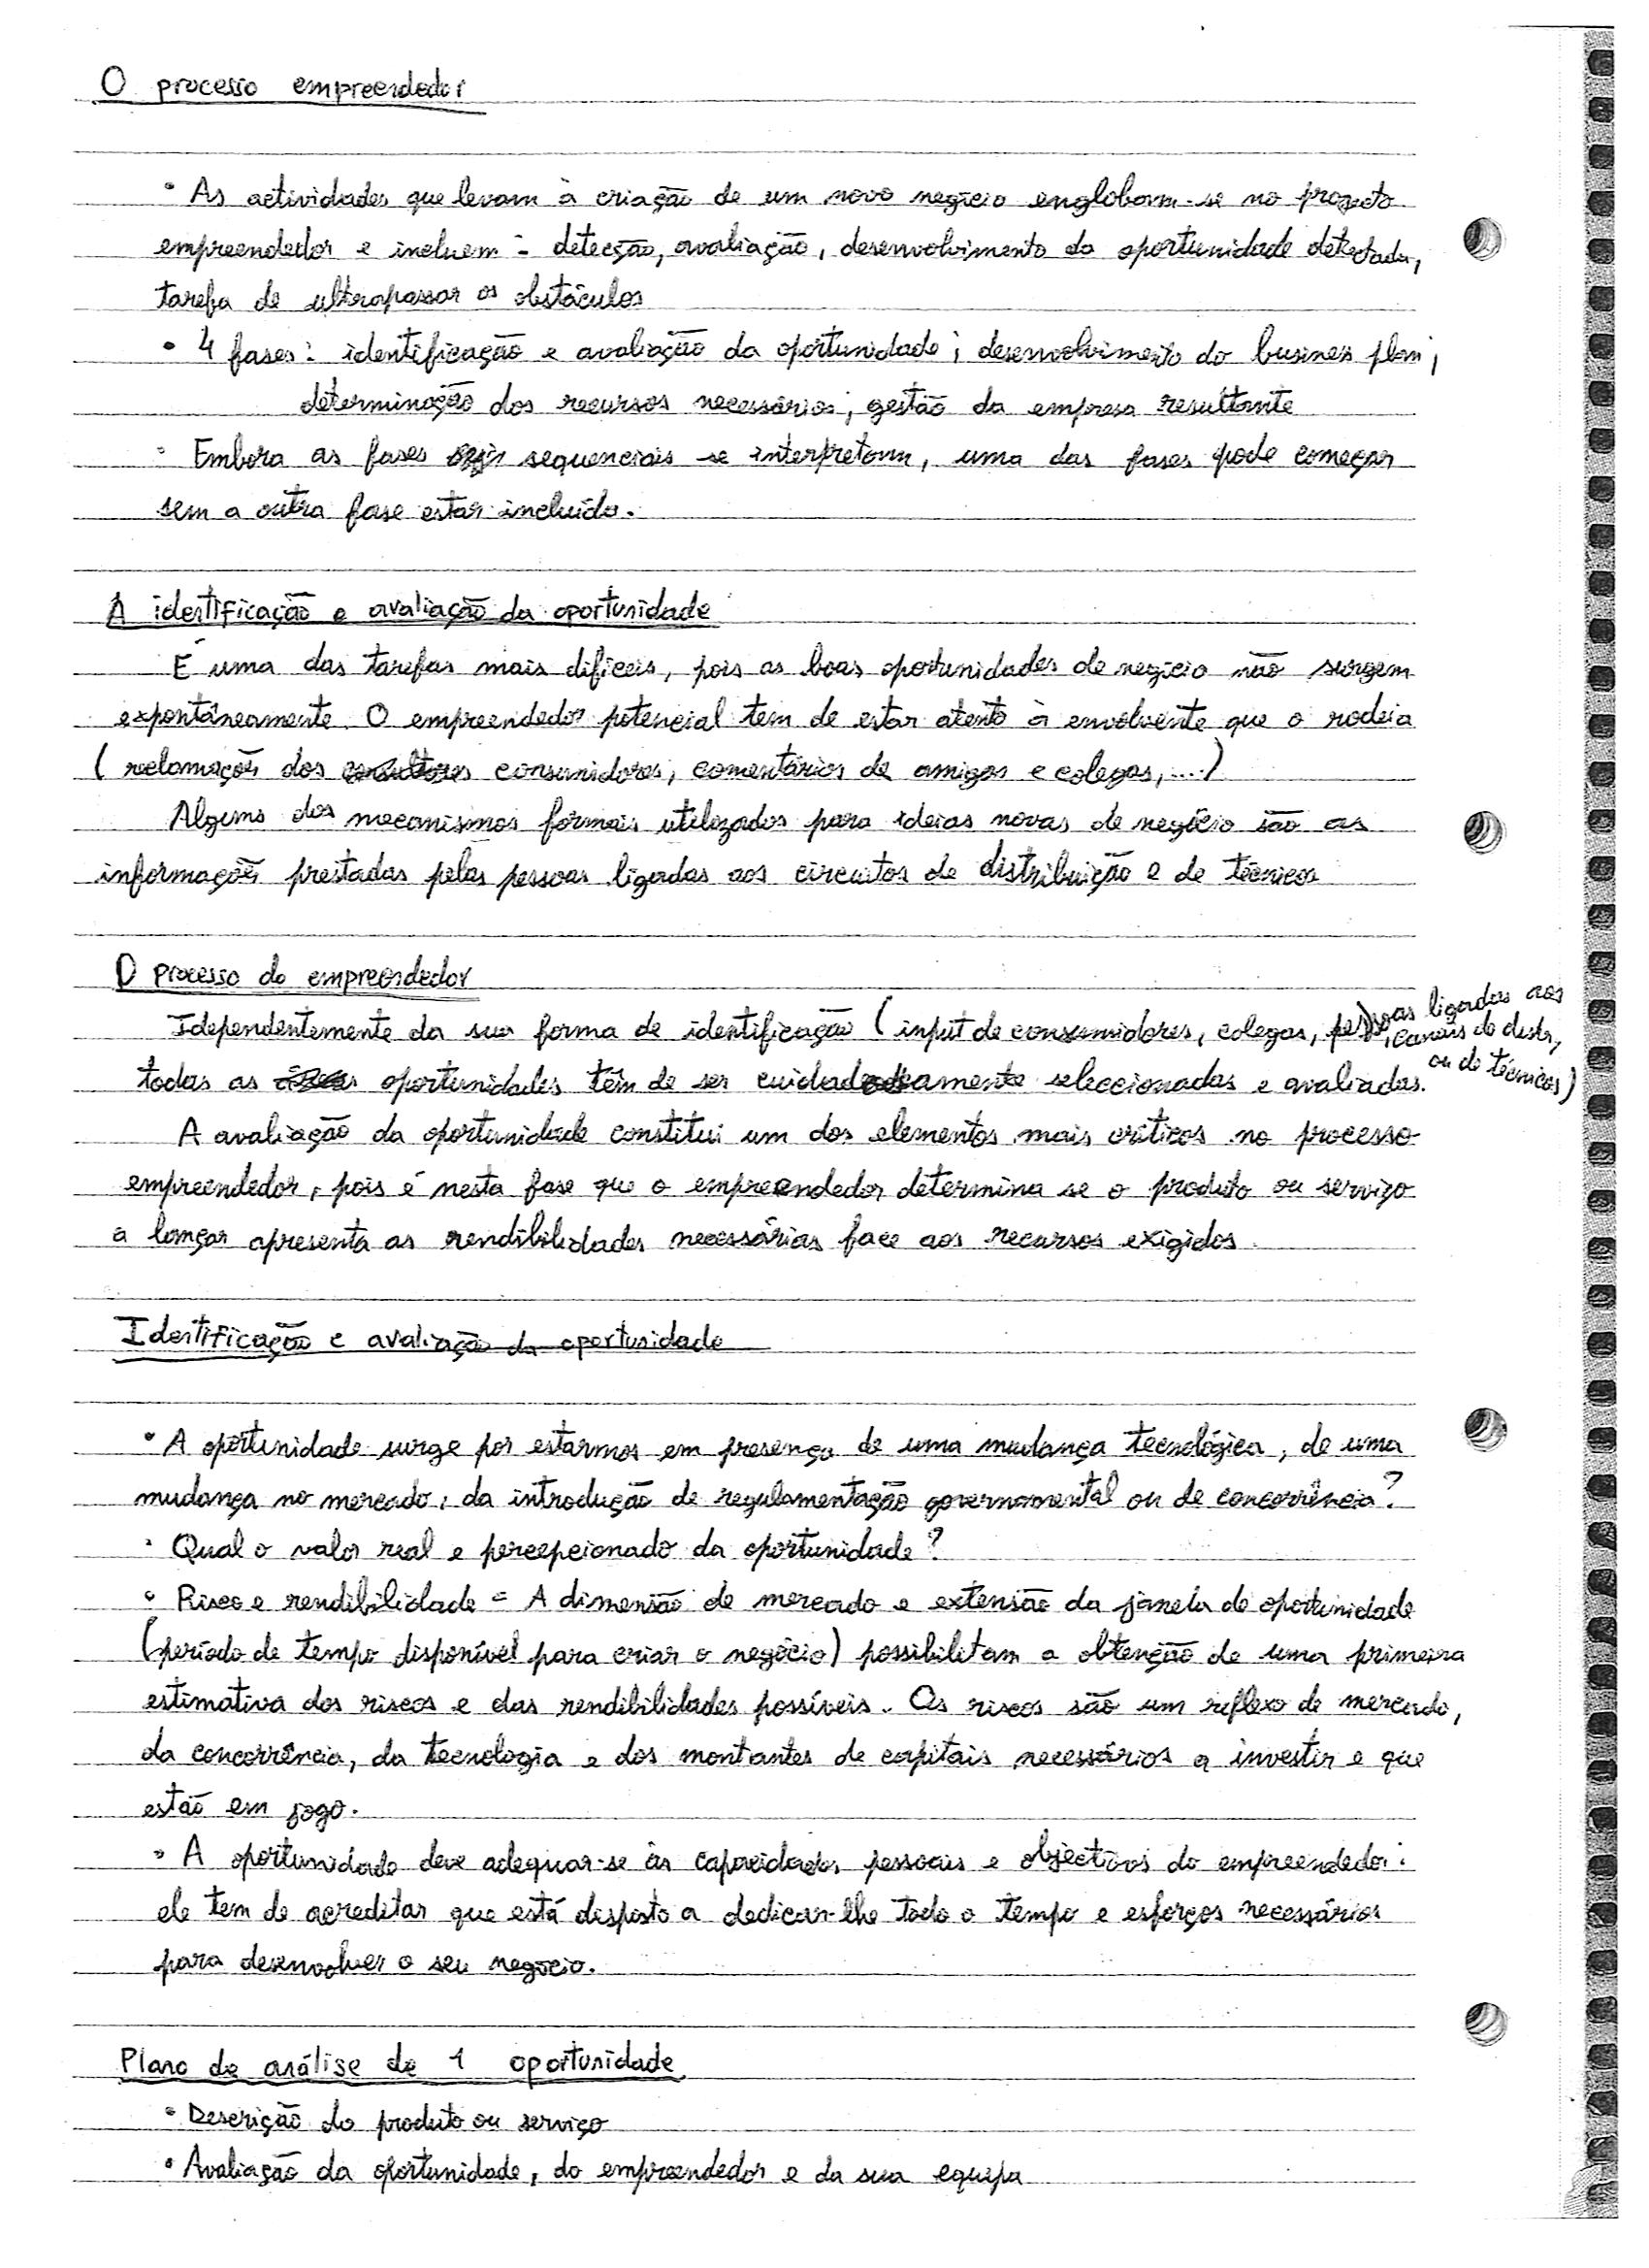 O processo empreendedor
• As actividades que levam à criação de um novo negócio englobam-se no projecto
empreendedor e incluem: detecção, avaliação, desenvolvimento da oportunidade detectada,
tarefa de ultrapassar os obstáculos
• 4 fases: identificação e avaliação da oportunidade; desenvolvimento do business plan;
determinação dos recursos necessários; gestão da empresa resultante
• Embora as fases sequenciais se interpretam, uma das fases pode começar
sem a outra fase estar incluída.
A identificação e avaliação da oportunidade
É uma das tarefas mais dificeis, pois as boas oportunidades de negócio não surgem
expontâneamente. O empreendedor potencial tem de estar atento à envolvente que o rodeia
(reclamações dos consumidores, comentários de amigos e colegas, ....)
Alguns dos mecanismos formais utilizados para ideias novas de negócio são as
informações prestadas pelas pessoas ligadas aos circuitos de distribuição e de técnicos
O processo do empreendedor
Idependentemente da sua forma de identificação (input de consumidores, colegas, pessoas ligadas aos
canais de distr,
ou de técnicos)
todas as oportunidades têm de ser cuidadosamente seleccionadas e avaliadas.
A avaliação da oportunidade constitui um dos elementos mais críticos no processo
empreendedor, pois é nesta fase que o empreendedor determina se o produto ou serviço
a lançar apresenta as rendibilidades necessárias face aos recursos exigidos.
Identificação e avaliação da oportunidade
• A oportunidade surge por estarmos em presença de uma mudança tecnológica, de uma
mudança no mercado, da introdução de regulamentação governamental ou de concorrência?
• Qual o valor real e percepcionado da oportunidade?
• Risco e rendibilidade = A dimensão de mercado e extensão da janela de oportunidade
(período de tempo disponível para criar o negócio) possibilitam a obtenção de uma primeira
estimativa dos riscos e das rendibilidades possíveis. Os riscos são um reflexo de mercado,
da concorrência, da tecnologia e dos montantes de capitais necessários a investir e que
estão em jogo.
• A oportunidade deve adequar-se às capacidades pessoais e objectivos do empreendedor:
ele tem de acreditar que está disposto a dedicar-lhe todo o tempo e esforços necessários
para desenvolver o seu negócio.
Plano de análise de 1 oportunidade
• Descrição do produto ou serviço
• Avaliação da oportunidade, do empreendedor e da sua equipa